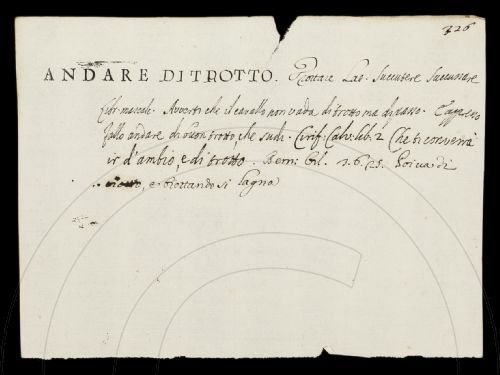 326
ANDARE DI TROTTO. Trottare Lat. Succutere Succussare
libr. mascal. Avverti che il cavallo non vada di trotto ma di passo.
fallo andare di buon trotto, che sudi. Cirif. Calv. lib. 2 Che ti converrà
ir d'ambio, e di trotto. Bern. Orl. 2. 6. 25. Poi va di
trotto, e trottando si lagna